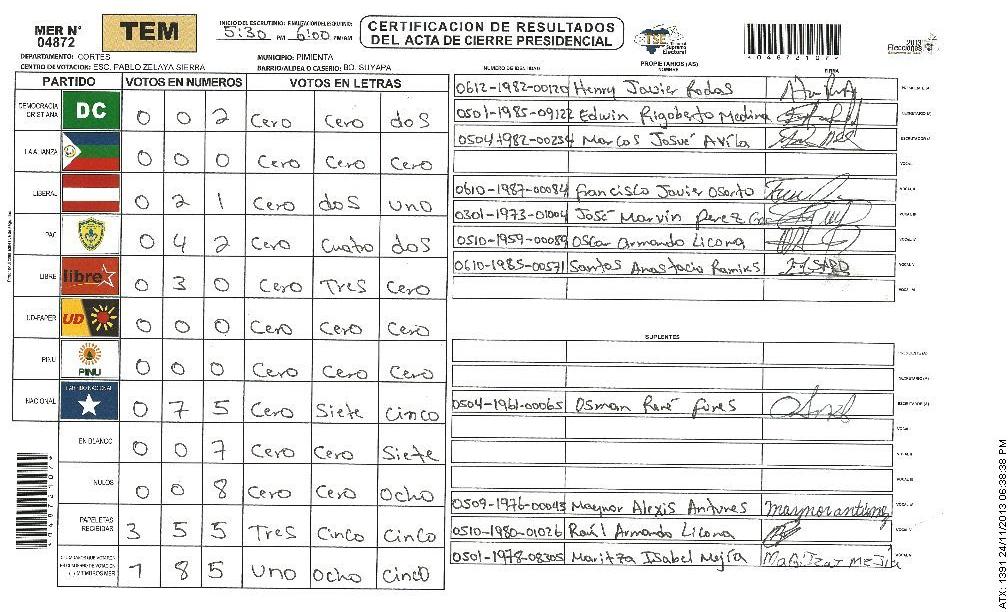 MER N° 04872
TEM
INICIO DEL ESCRUTINIO: 5:30 PM 6:00 PM/AM
CERTIFICACION DE RESULTADOS DEL ACTA DE CIERRE PRESIDENCIAL
TSE Tribunal Supremo Electoral
2013 Elecciones
DEPARTAMENTO: CORTES
MUNICIPIO: PIMIENTA
CENTRO DE VOTACION: ESC. PABLO ZELAYA SIERRA
BARRIO/ALDEA O CASERIO: BO. SUYAPA
PARTIDO VOTOS EN NUMEROS VOTOS EN LETRAS
DEMOCRACIA CRISTIANA DC 0 0 2 Cero Cero dos
LA ALIANZA 0 0 0 Cero Cero Cero
LIBERAL 0 2 1 Cero dos uno
PAC 0 4 2 Cero Cuatro dos
LIBRE libre 0 3 0 Cero Tres Cero
UD-FAPER UD 0 0 0 Cero Cero Cero
PINU PINU 0 0 0 Cero Cero Cero
NACIONAL PARTIDO NACIONAL 0 7 5 Cero Siete cinco
EN BLANCO 0 0 7 Cero Cero Siete
NULOS 0 0 8 Cero Cero Ocho
PAPELETAS RECIBIDAS 3 5 5 Tres Cinco Cinco
1 8 5 Uno ocho cinco
NUMERO DE IDENTIDAD PROPIETARIOS (AS) NOMBRE FIRMA
0612-1982-00120 Henry Javier Rodas
0501-1985-09122 Edwin Rigoberto Medina
0504-1982-00234 Marcos Josué Avila
0610-1987-00084 Francisco Javier Osorto
0301-1973-01004 José Marvin Perez
0510-1959-00089 Oscar Armando Licona
0610-1985-00571 Santos Anastacio Ramires
SUPLENTES
0504-1961-00065 Osman René Funes
0509-1976-00043 Maynor Alexis Antunes maynor antunez
0510-1980-01026 Raúl Armando Licona
0501-1978-08305 Maritza Isabel Mejía Maritza I Mejia
1048721077
1048721077
ATX: 1391 24/11/2013 06:38:38 PM